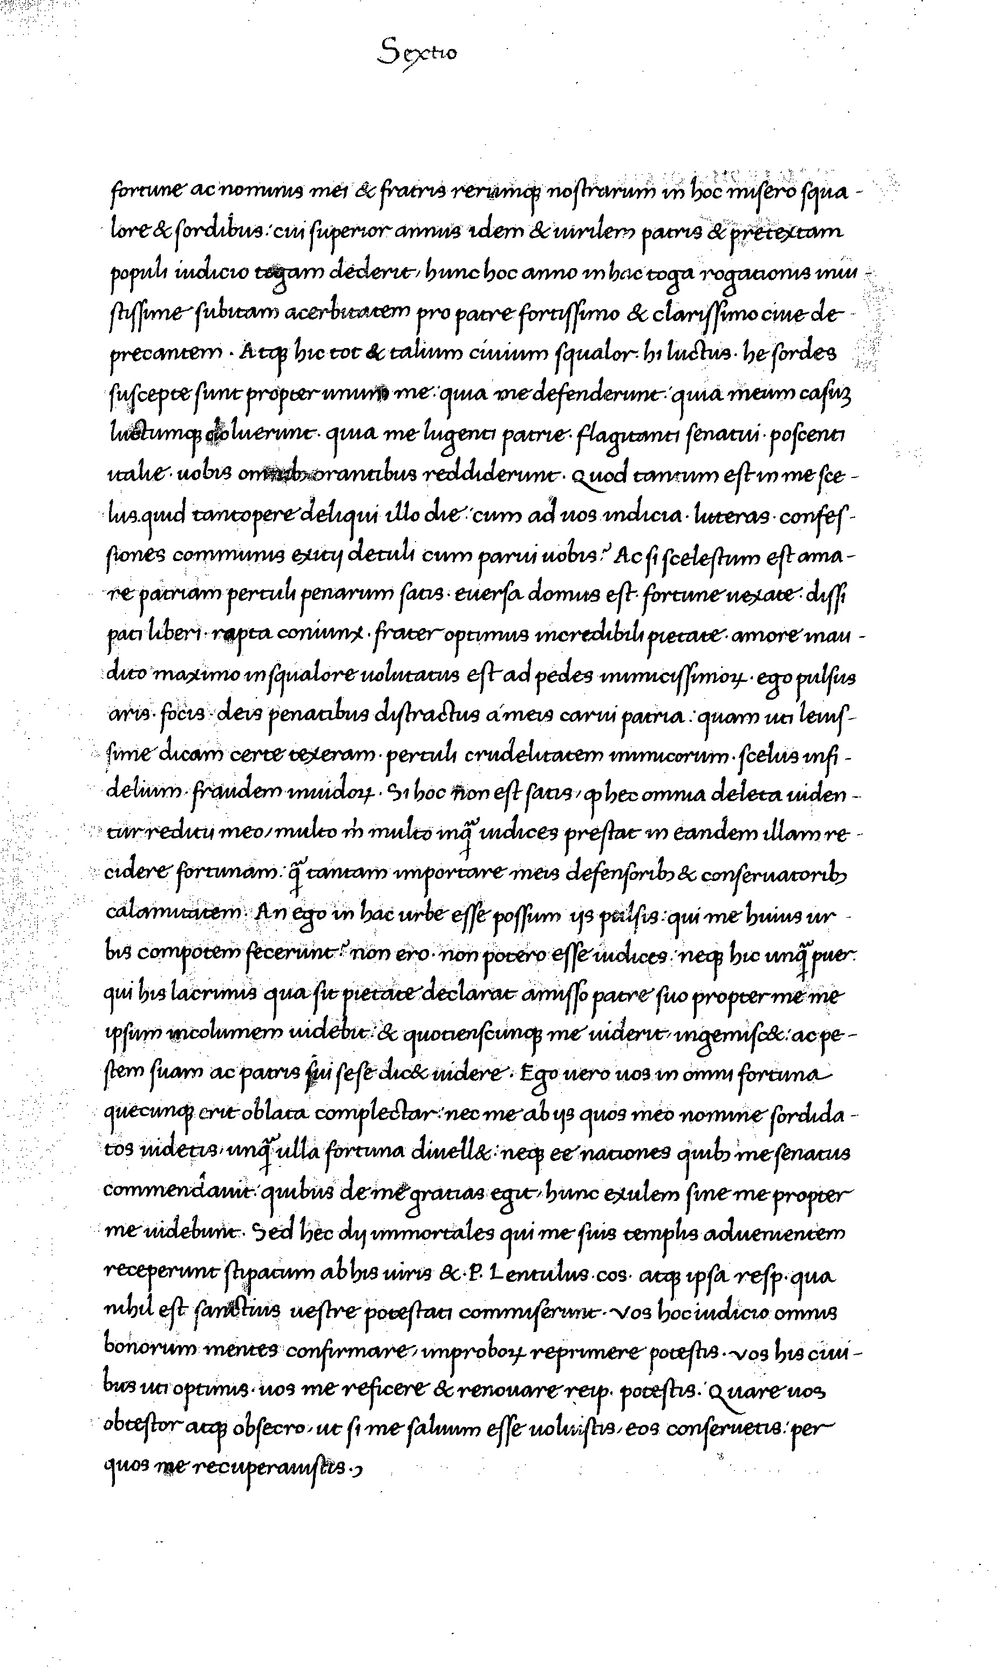 Sextio
fortune ac nominis mei & fratris rerumqꝫ nostrarum in hoc misero squa-
lore & sordibus: cui superior annus idem & uirilem patris & pretextam
populi iudicio togam dederit, hunc hoc anno in hac toga rogationis iniu-
stissime subitam acerbitatem pro patre fortissimo & clarissimo ciue de-
precantem. Atqꝫ hic tot & talium ciuium squalor. hi luctus. he sordes
suscepte sunt propter unum me: quia me defenderunt: quia meum casuꝫ
luctumqꝫ doluerunt. quia me lugenti patrie. flagitanti senatui. poscenti
italie. uobis omnibꝫ orantibus reddiderunt. Quod tantum est in me sce-
lus. quid tantopere deliqui illo die: cum ad uos indicia. litteras. confes-
siones communis exitij detuli cum parui uobis? Ac si scelestum est ama-
re patriam pertuli penarum satis. euersa domus est. fortune uexate. dissi
pati liberi. rapta coniunx. frater optimus incredibili pietate. amore inau-
dito maximo in squalore uolutatus est ad pedes inimicissimoꝝ. ego pulsus
aris. focis. deis penatibus distractus a meis carui patria: quam uti leuis-
sime dicam certe texeram. pertuli crudelitatem inimicorum. scelus infi-
delium. fraudem inuidoꝝ. Si hoc non est satis, ꝙ hec omnia deleta uiden-
tur reditu meo, multo m̊ multo inqͣ̃ iudices prestat in eandem illam re-
cidere fortunam: qͣ̃ tantam importare meis defensoribꝫ & conseruatoribꝫ
calamitatem. An ego in hac urbe esse possum ijs pulsis: qui me huius ur-
bis compotem fecerunt? non ero. non potero esse iudices: neqꝫ hic unqͣ̃ puer.
qui his lacrimis qua sit pietate declarat amisso patre suo propter me me
ipsum incolumem uidebit: & quotienscunqꝫ me uiderit, ingemisc&: ac pe-
stem suam ac patris sui sese dic& uidere. Ego uero uos in omni fortuna
quecunqꝫ erit oblata complectar: nec me ab ijs quos meo nomine sordida-
tos uidetis, unqͣ̃ ulla fortuna diuell&: neqꝫ ee nationes quibꝫ me senatus
commendauit: quibus de me gratias egit, hunc exulem sine me propter
me uidebunt. Sed hec dij immortales qui me suis templis aduenientem
receperunt stipatum ab his uiris &. P. Lentulus. cos. atqꝫ ipsa resp. qua
nihil est sanctius uestre potestati commiserunt. Vos hoc iudicio omnis
bonorum mentes confirmare, improboꝝ reprimere potestis. vos his ciui-
bus uti optimis. uos me reficere & renouare reip. potestis. Quare uos
obtestor atqꝫ obsecro, ut si me saluum esse uoluistis, eos conseruetis: per
quos me recuperauistis.,